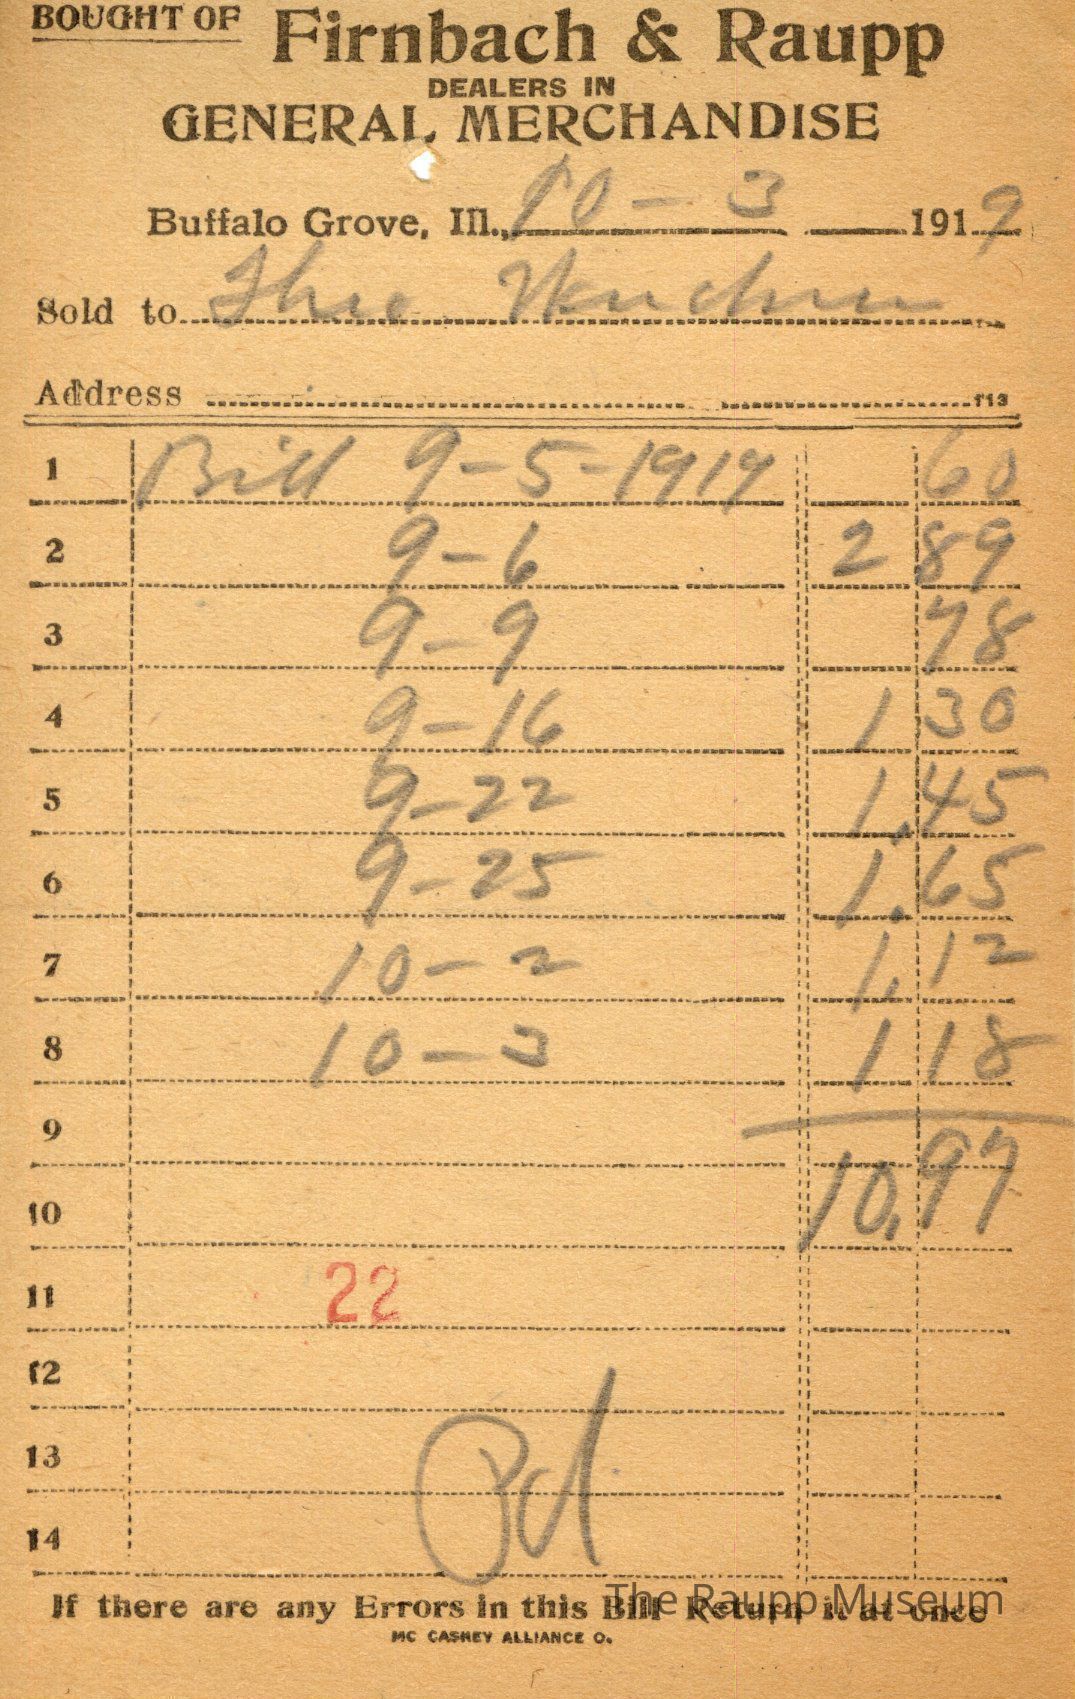 BOUGHT OF Firnbach & Raupp
DEALERS IN
GENERAL MERCHANDISE
Buffalo Grove, Ill., 10-3 1919
Sold to Theo
Address 113
1 Bill 9-5-1919 60
2 9-6 2 89
3 9-9 78
4 9-16 1 30
5 9-22 1.45
6 9-25 1.65
7 10-2 1.12
8 10-3 1 18
9
10 10.97
11 22
12
13 Pd
14
If there are any Errors in this Bill Return it at once
The Raupp Museum
MC CASKEY ALLIANCE O.